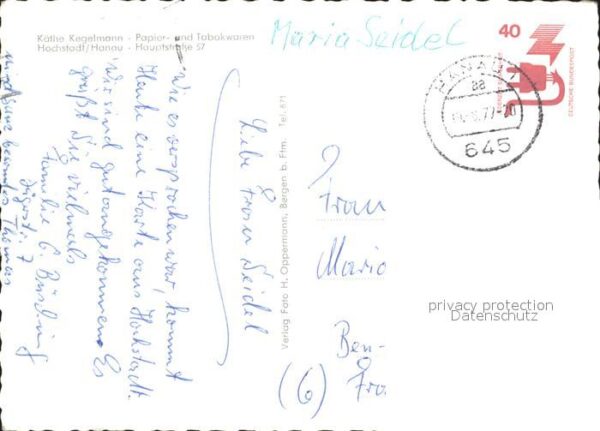 Käthe Kegelmann - Papier- und Tabakwaren
Hochstadt/Hanau - Hauptstraße 57
Maria Seidel
40
DEUTSCHE BUNDESPOST
HANAU 1
aa
77-20
645
Liebe Frau Seidel
Wie es versprochen war, kommt
Heute eine Karte aus Hochstadt.
Wir sind gut angekommen. Es
grüßt Sie vielmals
Familie G. Büsching
Jägerstr. 7
Verlag Foto H. Oppermann, Bergen b. Ffm Tel. 671
Frau
Maria
Ben-
(6) Fra
privacy protection
Datenschutz